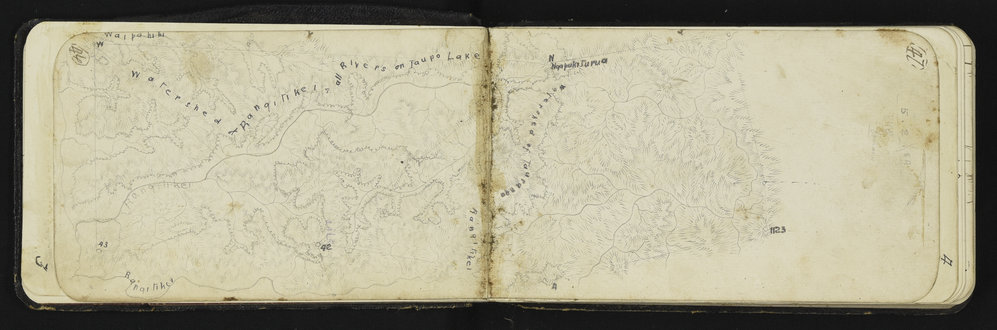 Waipahihi
W
Watershed
Rangitikei & all Rivers on Taupo Lake
Rangitikei
43
42
Rangitikei
3
Rangitikei
N
Ngapuketurua
Watershed of Tauranga
1123
4